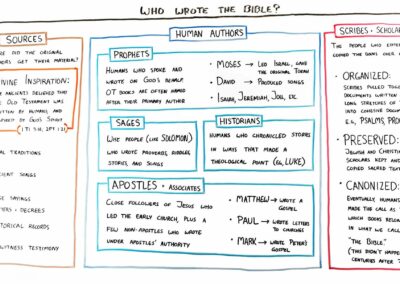 WHO WROTE THE BIBLE?
SOURCES
DID THE ORIGINAL
GET THEIR MATERIAL?
INSPIRATION:
ANCIENTS BELIEVED THAT
OLD TESTAMENT WAS
WRITTEN BY HUMANS, AND
OF GOD'S SPIRIT
TRADITIONS
SONGS
SAYINGS
DECREES
RECORDS
TESTIMONY
HUMAN AUTHORS
PROPHETS
HUMANS WHO SPOKE AND
WROTE ON GOD'S BEHALF.
OT BOOKS ARE OFTEN NAMED
AFTER THEIR PRIMARY AUTHOR
• MOSES → LED ISRAEL, GAVE
THE ORIGINAL TORAH
• DAVID → PRODUCED SONGS
• ISAIAH, JEREMIAH, JOEL, ETC
SAGES
WISE PEOPLE (LIKE SOLOMON)
WHO WROTE PROVERBS, RIDDLES,
STORIES, AND SONGS
HISTORIANS
HUMANS WHO CHRONICLED STORIES
IN WAYS THAT MADE A
THEOLOGICAL POINT (EG, LUKE)
APOSTLES + ASSOCIATES
CLOSE FOLLOWERS OF JESUS WHO
LED THE EARLY CHURCH, PLUS A
FEW NON-APOSTLES WHO WROTE
UNDER APOSTLES' AUTHORITY
• MATTHEW → WROTE A
GOSPEL
• PAUL → WROTE LETTERS
TO CHURCHES
• MARK → WROTE PETER'S
GOSPEL
SCRIBES + SCHOLARS
THE PEOPLE WHO
COPIED THE DOCS OVER
• ORGANIZED:
SCRIBES PULLED
DOCUMENTS WRITTEN
LONG STRETCHES OF
INTO COHESIVE
E.G., PSALMS,
• PRESERVED:
JEWISH AND
SCHOLARS KEPT AND
COPIED SACRED
• CANONIZED:
EVENTUALLY, HUMANS
MADE THE CALL AS
WHICH BOOKS
IN WHAT WE NOW
"THE BIBLE"
(THIS DIDN'T HAPPEN
CENTURIES AFTER